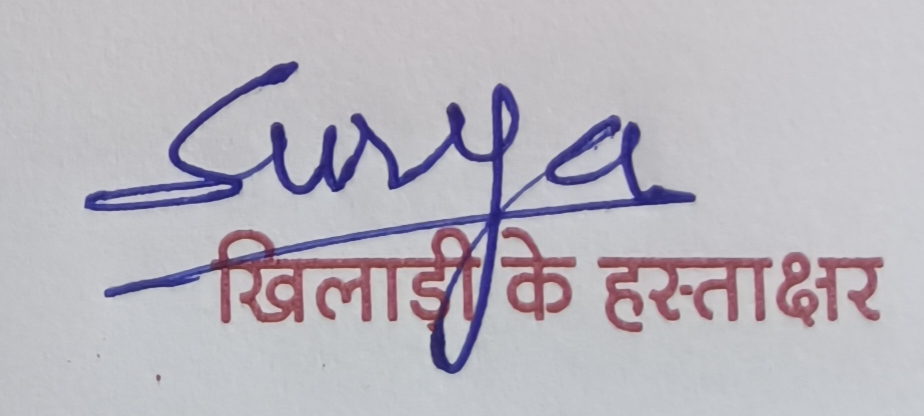 Surya
खिलाड़ी के हस्ताक्षर